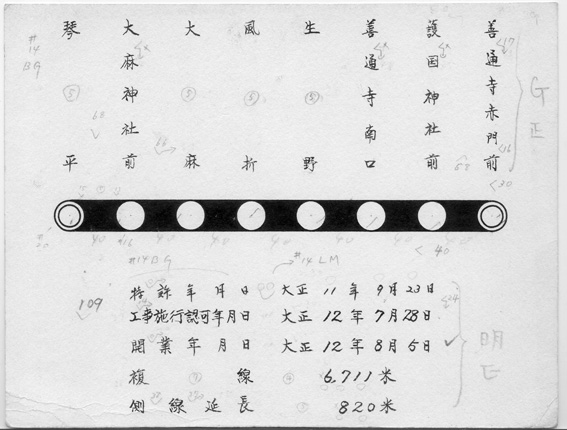 善通寺赤門前
護国神社前
善通寺南口
生野
風折
大麻
大麻神社前
琴平
特許年月日 大正11年9月23日
工事施行認可年月日 大正12年7月28日
開業年月日 大正12年8月5日
複線 6,711米
側線延長 820米
109
#14 BG
#14 BG
#14 LM
G正
明正